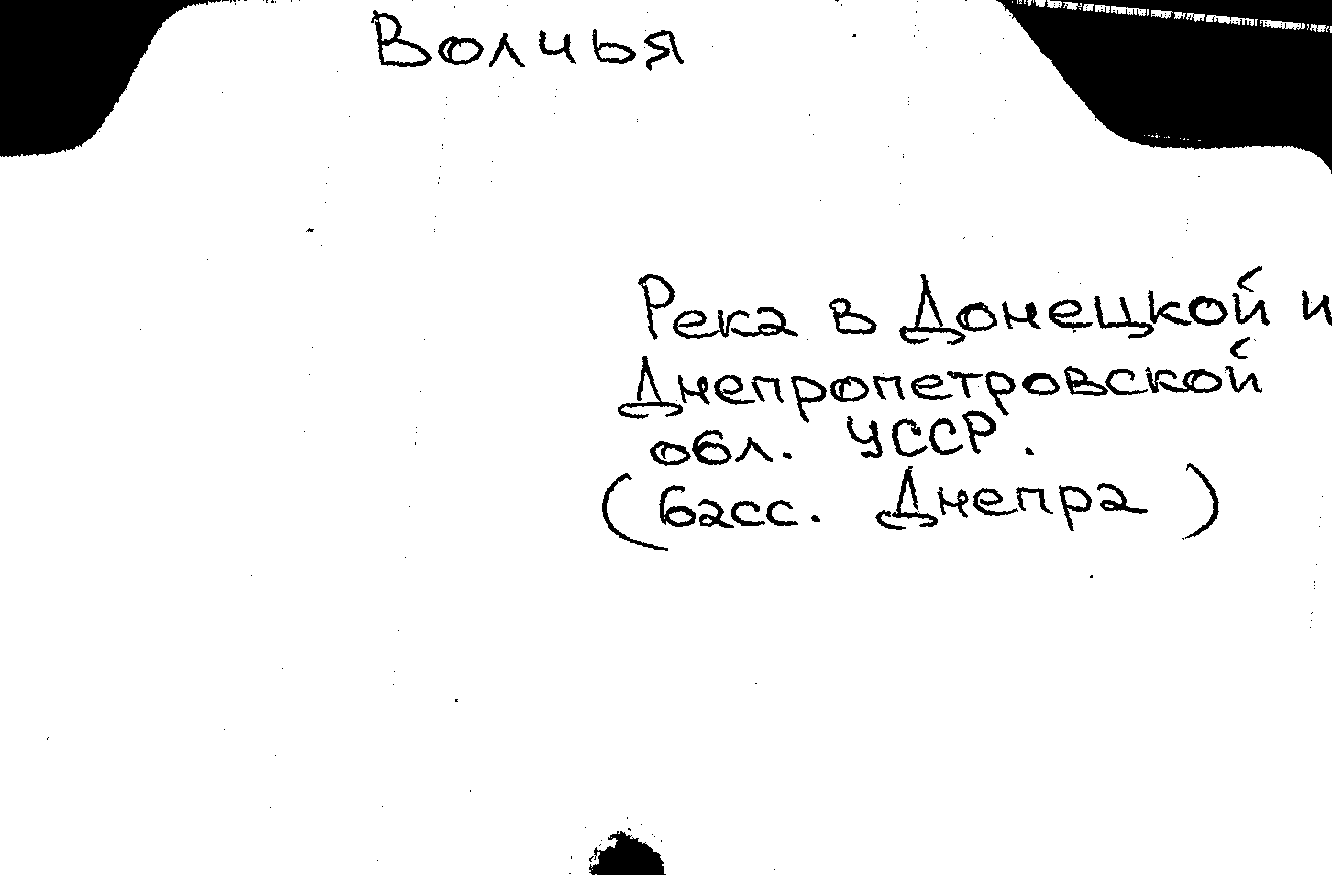 Волчья
Река в Донецкой и
Днепропетровской
обл. УССР.
(басс. Днепра)